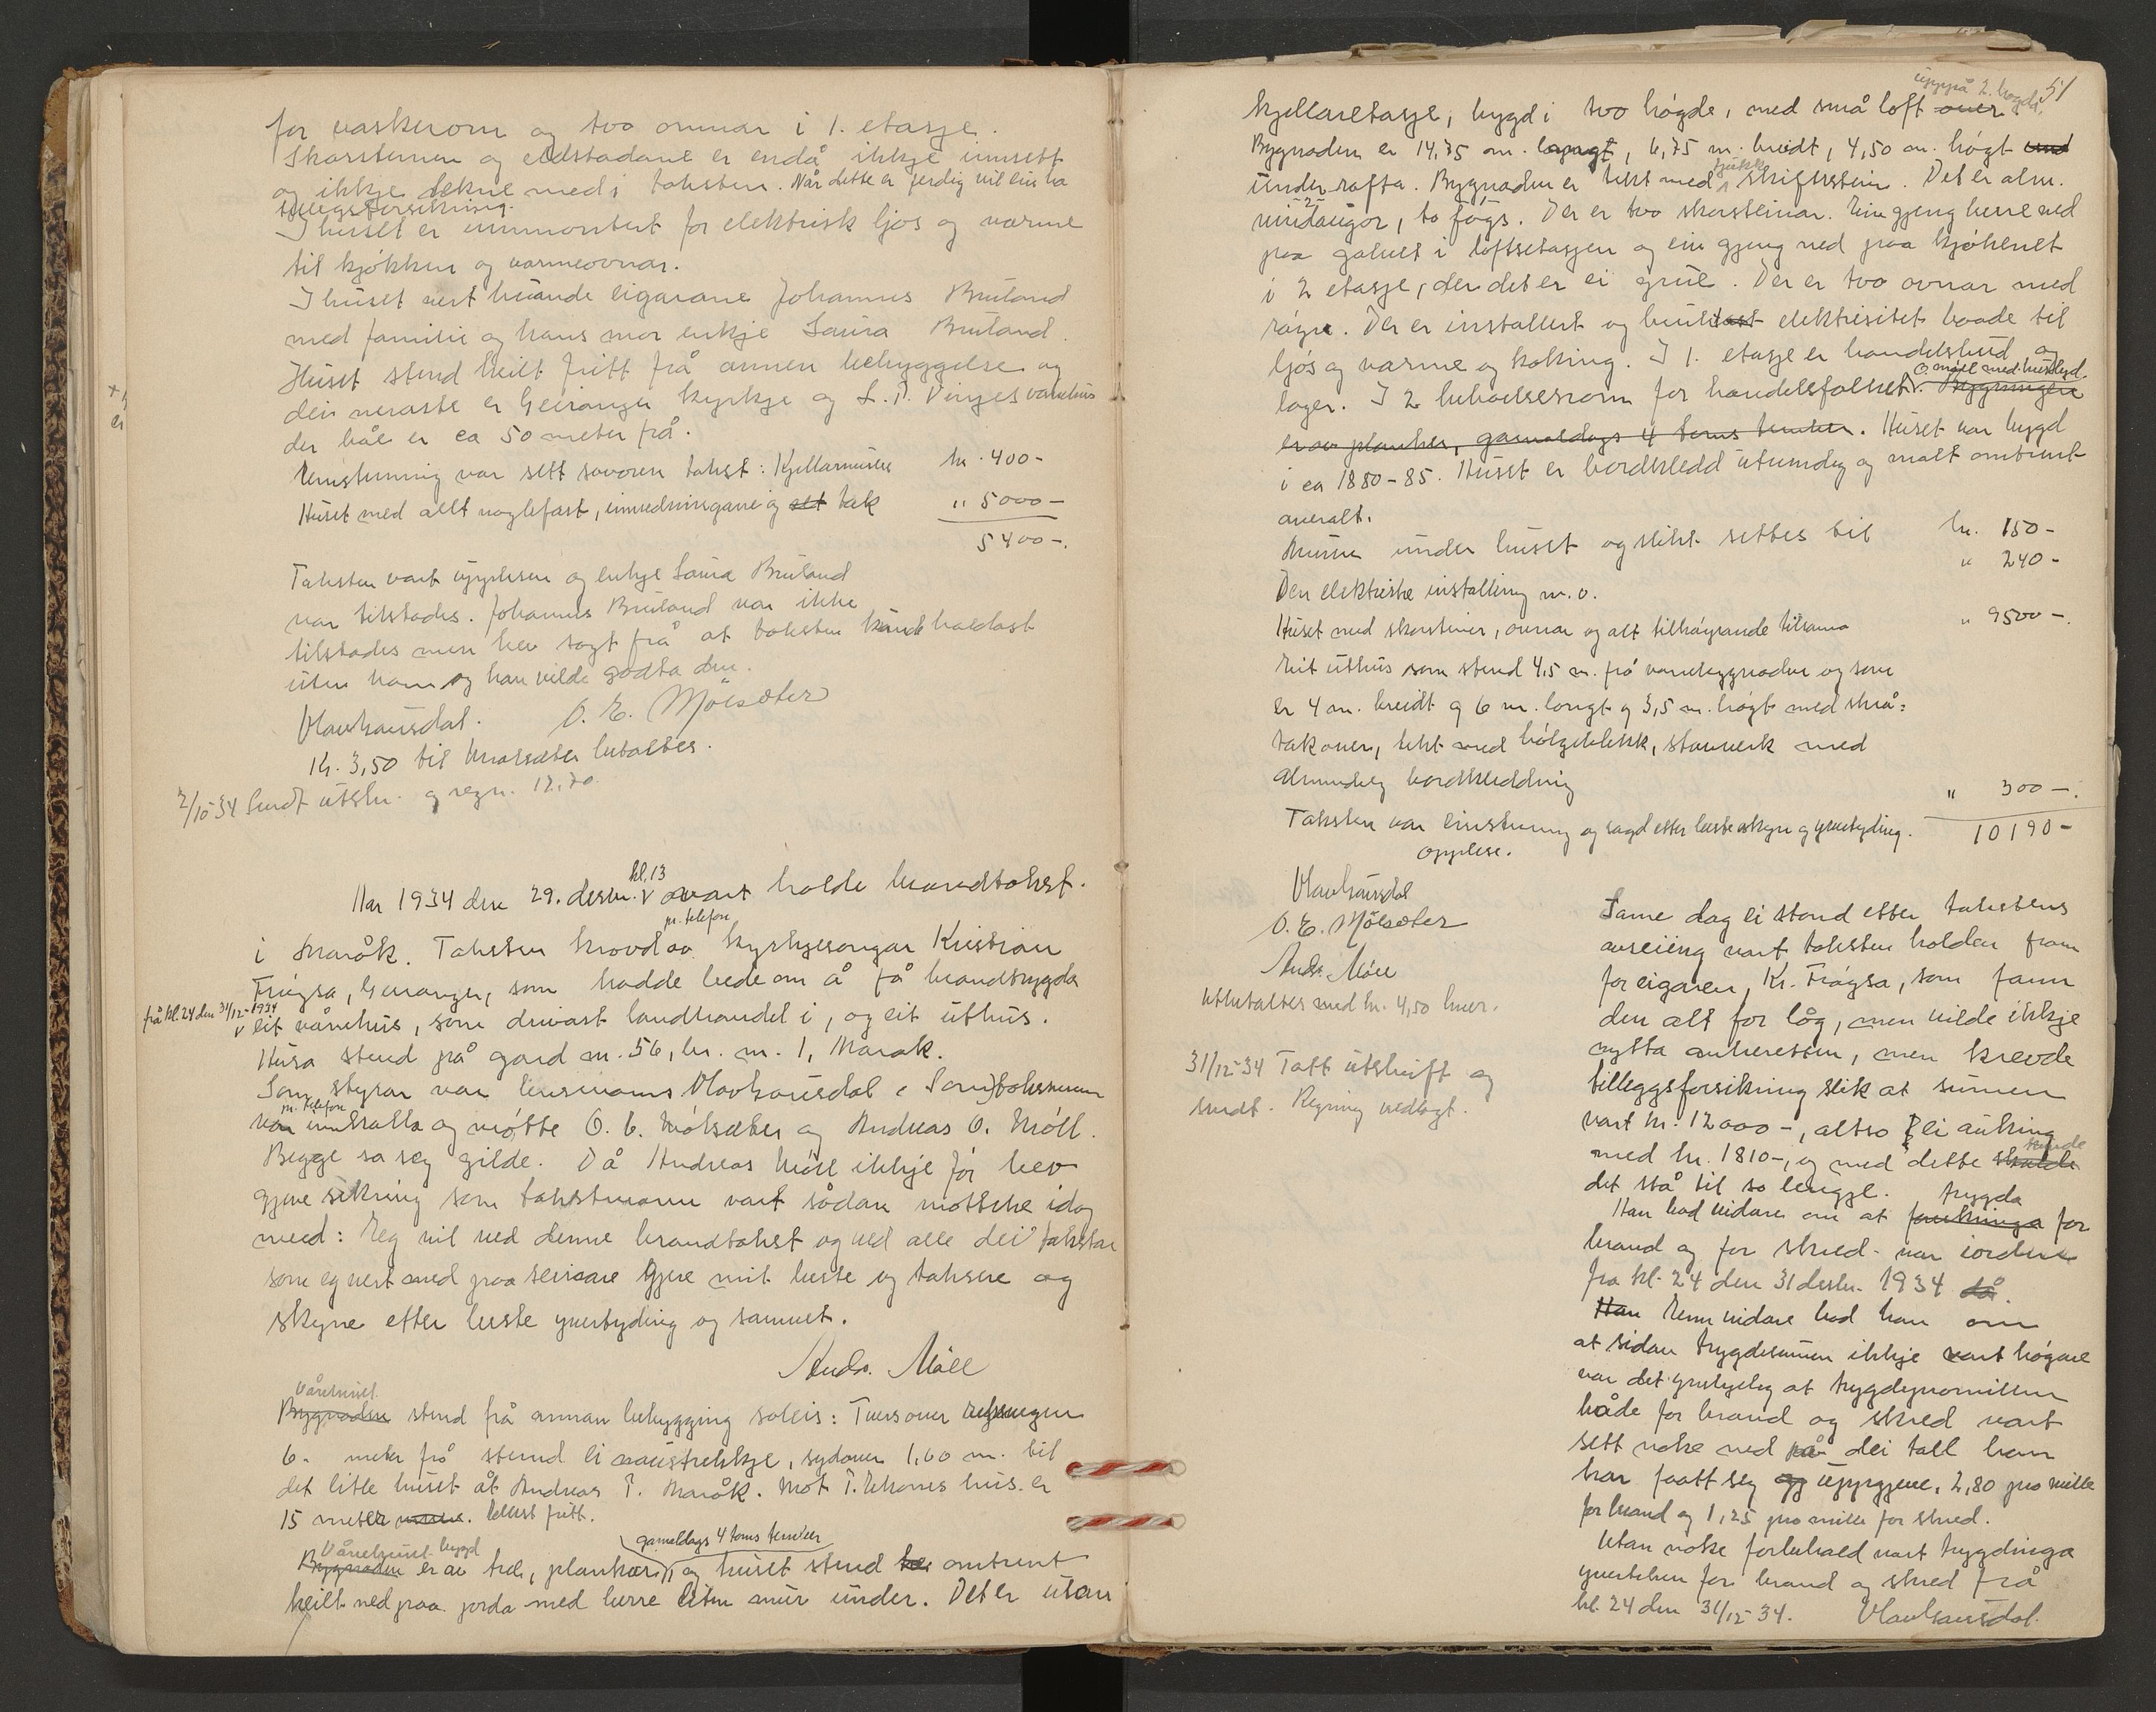 for vaskerom og tvo omnar i 1. etasje.
Skorsteinen og eldstadane er endå ikkje innsett
og ikkje rekne med i taksten. Når dette er ferdig vil ein ha
tilegsforsikring.
I huset er innmontert for elektrisk ljos og varme
til kjøkken og varmeovnar.
I huset vert buande eigarane Johannes Bruland
med familie og hans mor enkje Laura Bruland.
Huset stend heilt fritt frå annen bebyggelse og
dei neraste er Geiranger kyrkje og L. P. Vinjes vånehus
der båe er ca 50 meter frå.
Einstemmig var sett sovoren takst: Kjellarmuren kr. 400-
Huset med alt naglefast, innredningane og alt tak " 5000-
5400-.
Taksten vart upplesen og enkje Laura Bruland
var tilstades. Johannes Bruland var ikke
tilstades men hev sagt frå at taksten kunde haldast
uten ham og han vilde godta den.
Olav Hausdal. O. E. Mölsæter
Kr. 3,50 til Mølsæter betaltes.
2/10-34 Sendt utskr. og regn. 12,70.
kl. 13
Aar 1934 den 29. desbr. vart halde brandtakst.
pr. telefon
i Maråk. Taksten kravd av kyrkjesongar Kristian
Frøysa, Geiranger, som hadde bede om å få brandtrygda
frå kl. 24 den 31/12-1934
eit vånehus, som drivast landhandel i, og eit uthus.
Husa stend på gard nr. 56, br. nr. 1, Marak.
Som styrar var lensmann Olav Hausdal. Som takstmenn
pr. telefon
var innkalla og møtte O. E. Mölsæter og Andreas O. Möll.
Begge sa seg gilde. Då Andreas Möll ikkje før hev
gjeve sikring som takstmann vart sådan motteke idag
med: Eg vil ved denne brandtakst og ved alle dei takstar
som eg vert med paa seinare gjere mit beste og taksere og
skyne etter beste yvertyding og samvet.
Andr. Möll
Vånehuset
Bygnaden stend frå annan bebygging soleis: Tvers over
6- meter frå stend ei naustrekkje, sydover 1,60 m. til
det litle huset åt Andreas P. Maråk. Mot hus er
15 meter. Ellest fritt.
gamaldags 4 toms tember
Vånehuset bygd
Bygnaden er av tre, plankar, og huset stend omtrent
heilt ned paa jorda med berre liten mur under. Det er utan
51
uppå 2. høgda.
kjellaretasje, bygd i tvo høgde, med små loft over
Bygnaden er 14,75 m. langt, 6,75 m. breidt, 4,50 m. høgt
tjukk
under rafta. Bygnaden er tekt med skiferstein. Det er alm.
vindaugor, to fags. Der er tvo skorsteinar. Ein gjeng berre ned
paa golvet i loftsetasjen og ein gjeng ned paa kjøkenet
i 2 etasje, der det er ei grue. Der er tvo ovnar med
røyr. Der er installert og brukast elektrisitet baade til
ljos og varme og koking. I 1. etasje er handelsbud og
O. Möll med huslyd.
lager. I 2 bebuelsesrom for handelsfolket. Bygningen
er av planker, gamaldags 4 toms tember. Huset var bygd
i ca 1880-85. Huset er bordkledd utvendig og malt omtrent
overalt.
Muren under huset og slikt settes til kr. 150-
Den elektriske installering m. v. " 240-
Huset med skorsteiner, ovnar og alt tilhøyrande tilsama " 9500-.
Eit uthus som stend 4,5 m. frå vånebygnaden og som
er 4 m. breidt og 6 m. langt og 3,5 m. høgt med skrå-
tak over, tekt med bølgeblekk, stavverk med
almindeleg bordkledding " 300-.
Taksten var einstemmig og sagd etter beste skyn og yvertyding. 10190-
Opplese.
Olav Hausdal
O. E. Mölsæter
Andr. Möll
Utbetaltes med kr. 4,50 kver.
31/12-34 Tatt utskrift og
sendt. Regning vedlagt.
Same dag ei stond etter takstens
avseiing vart taksten halden fram
for eigaren, Kr. Frøysa, som fann
den alt for låg, men vilde ikkje
nytta ankeretten, men krevde
tilleggsforsikring slik at summen
vart kr. 12000-, altso ei auking
kunde
med kr. 1810-, og med dette skulde
det stå til so lengje.
trygda
Han bad vidare om at for
brand og for skred var iorden
fra kl. 24 den 31 desbr. 1934 då.
Han Enn vidare bad han om
at sidan trygdesummen ikkje vart høgare
var det ynskjeleg at trygdepromillen
både for brand og skred vart
sett noke ned på dei tall han
har faatt seg og uppgjeve, 2,80 pro mille
for brand og 1,25 pro mille for skred.
Utan noke forbehald vart trygdinga
yverteken for brand og skred frå
kl. 24 den 31/12-34. Olav Hausdal.